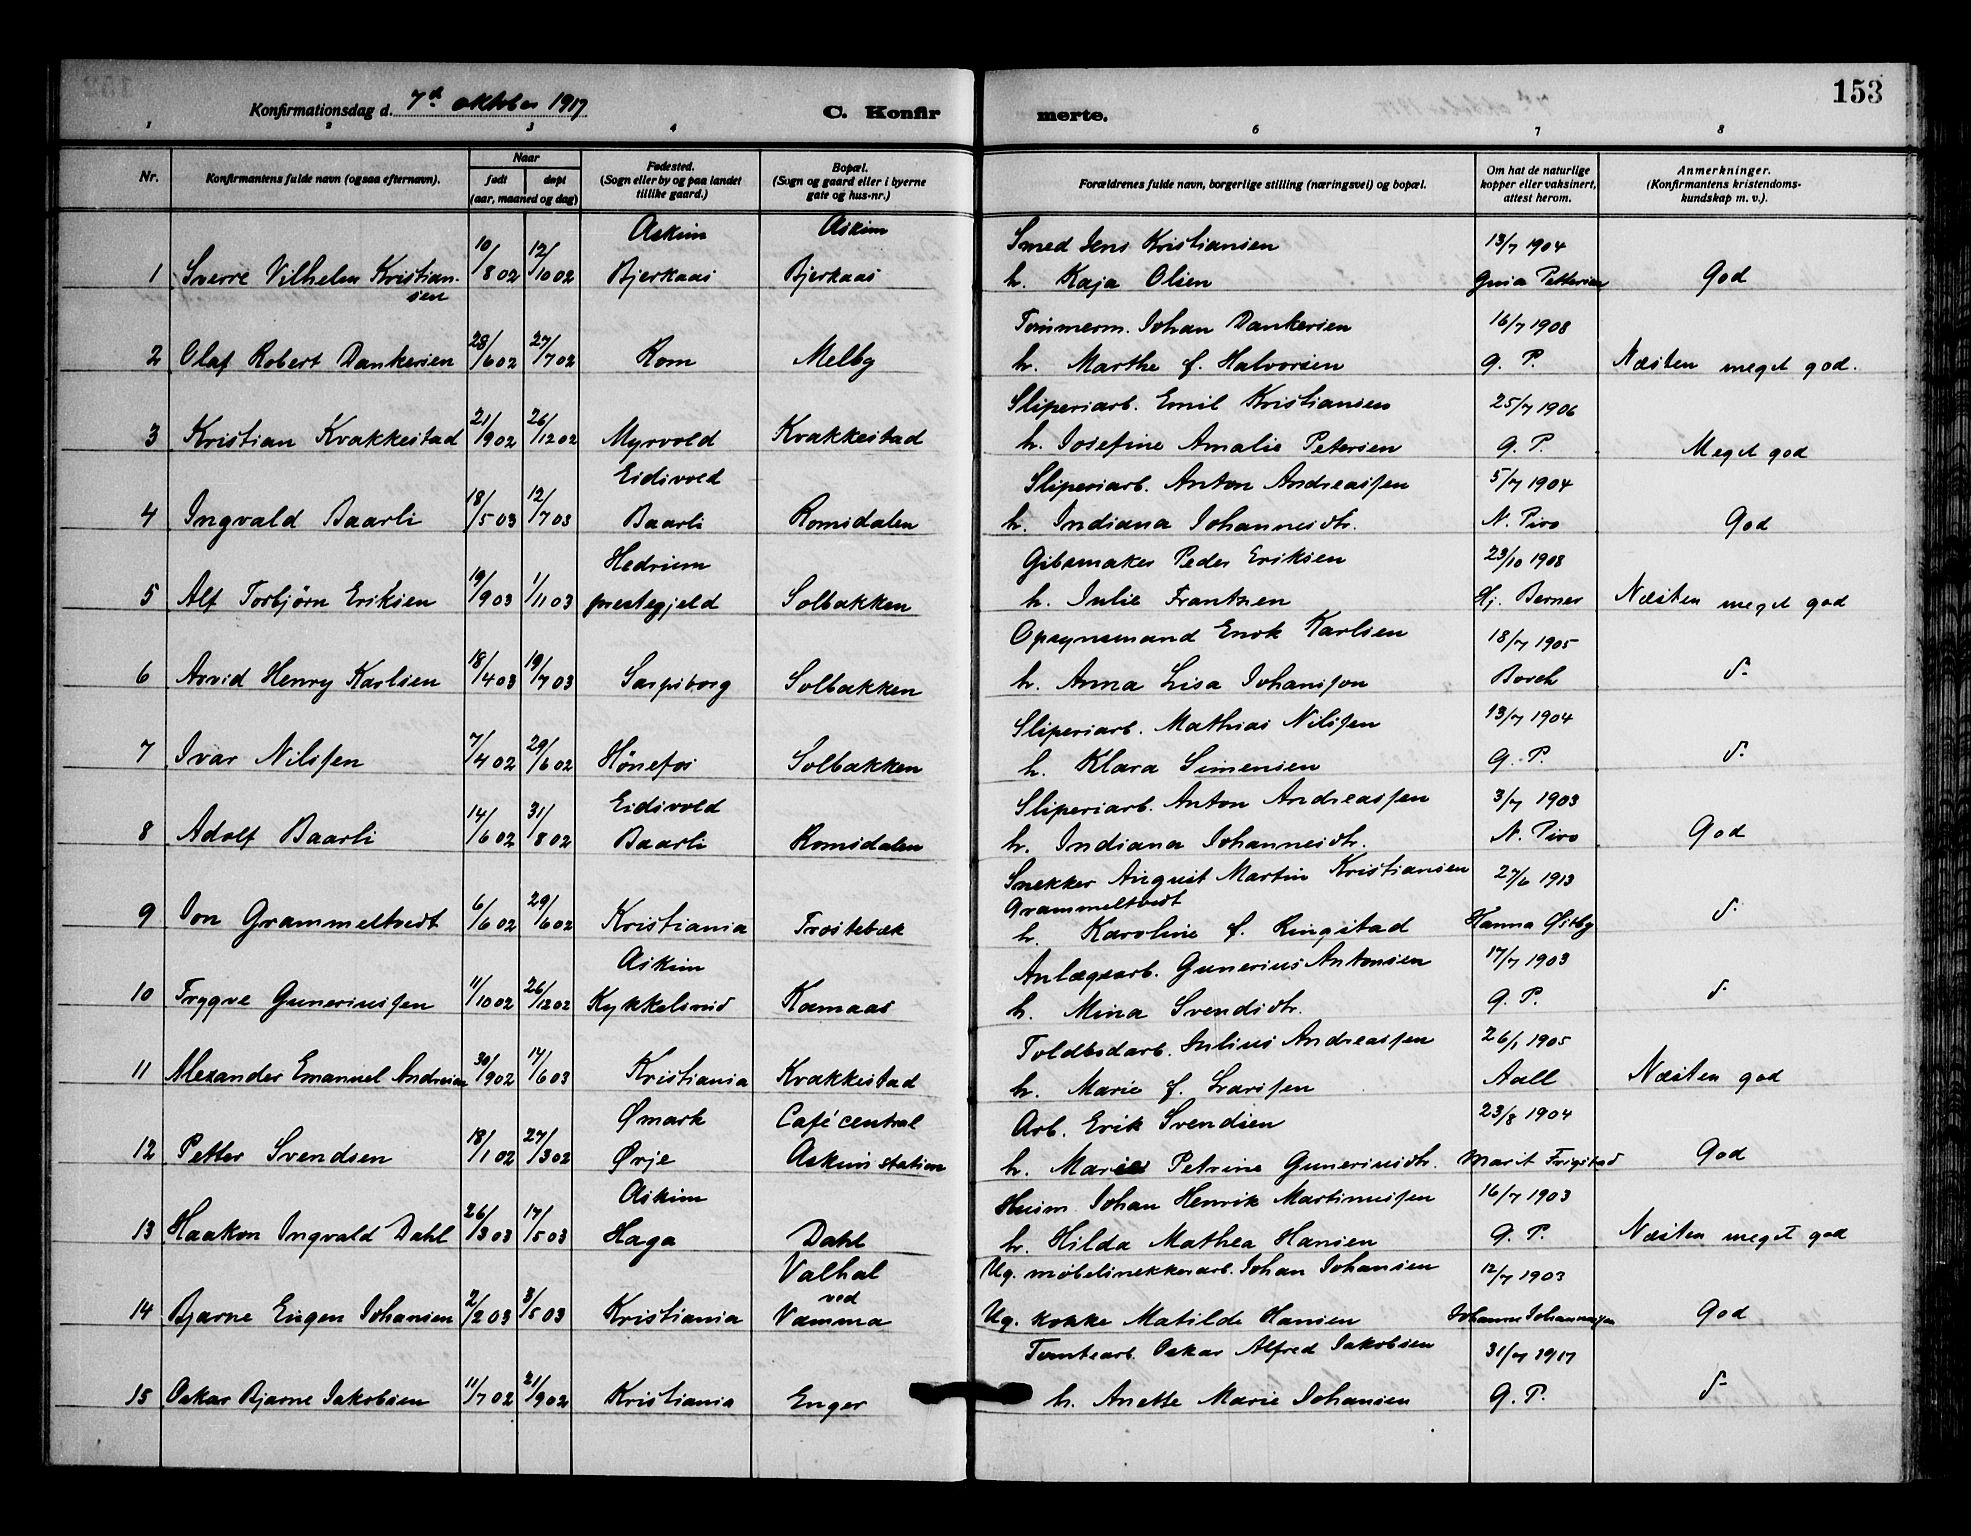 153
Konfirmationsdag d. 7d oktober 1917
C. Konfir merte.
1 2 3 4 6 7 8
Nr.
Konfirmantens fulde navn (ogsaa efternavn).
Naar
født døpt
(aar, maaned og dag)
Fødested.
(Sogn eller by og paa landet
tillike gaard.)
Bopæl.
(Sogn og gaard eller i byerne
gate og hus-nr.)
Forældrenes fulde navn, borgerlige stilling (næringsvei) og bopæl.
Om hat de naturlige
kopper eller vaksinert,
attest herom.
Anmerkninger.
(Konfirmantens kristendoms-
kundskap m. v.).
10/ 12/ Askim Askim Smed Jens Kristiansen 13/7 1904
1 Sverre Vilhelm Kristian- /8 02 /10 02 Bjerkaas Bjerkaas h. Kaja Olsen Gina Pettersen God
sen
28/ 27/ Tømmerm. Johan Dankersen 16/7 1908
2 Olaf Robert Dankersen /6 02 /7 02 Rom Melby h. Marthe f. Halvorsen G. P. Næsten meget god.
21/ 26/ Sliperiarb. Emil Kristiansen 25/7 1906
3 Kristian Kvakkestad /9 02 /12 02 Myrvold Kvakkestad h. Josefine Amalie Petersen G. P. Meget god
18/ 12/ Eidsvold Sliperiarb. Anton Andreassen 5/7 1904
4 Ingvald Baarli /5 03 /7 03 Baarli Romsdalen h. Indiana Johannesdtr. N. Piro God
19/ 1/ Hedrum Gibsmaker Peder Eriksen 23/10 1908
5 Alf Torbjørn Eriksen /9 03 /11 03 prestegjeld Solbakken h. Julie Frantzen Hj. Berner Næsten meget god
18/ 19/ Opsynsmand Enok Karlsen 18/7 1905
6 Arvid Henry Karlsen /4 03 /7 03 Sarpsborg Solbakken h. Anna Lisa Johansson Borch d-
7/ 29/ Sliperiarb. Mathias Nilssen 13/7 1904
7 Ivar Nilssen /4 02 /6 02 Hønefos Solbakken h. Klara Simensen G. P. d-
14/ 31/ Eidsvold Sliperiarb. Anton Andreassen 3/7 1903
8 Adolf Baarli /6 02 /8 02 Baarli Romsdalen h. Indiana Johannesdtr. N. Piro God
6/ 29/ Snekker August Martin Kristiansen 27/6 1913
Grammeltvedt
9 Jon Grammeltvedt /6 02 /6 02 Kristiania Trøstebæk h. Karoline f. Ringstad Hanna Østby d-
11/ 26/ Askim Anlægsarb. Gunerius Antonsen 17/7 1903
10 Trygve Guneriussen /10 02 /12 02 Kykkelsrud Kamaas h. Mina Svendsdtr. G. P. d-
30/ 17/ Toldbodarb. Julius Andreassen 26/1 1905
11 Alexander Emanuel Andresen /9 02 /6 03 Kristiania Kvakkestad h. Marie f. Larssen Aall Næsten god
18/ 27/ Ømark Café central Arb. Erik Svendsen 23/8 1904
12 Petter Svendsen /1 02 /3 02 Ørje Askim station h. Marie Petrine Guneriusdtr. Marit Frigstad God
26/ 17/ Askim Husm. Johan Henrik Martinussen 16/7 1903
13 Haakon Ingvald Dahl /3 03 /5 03 Haga Dahl h. Hilda Mathea Hansen G. P. Næsten meget god
2/ 3/ Valhal Ug. møbelsnekkerarb. Johan Johansen 12/7 1903
ved
14 Bjarne Eugen Johansen /2 03 /5 03 Kristiania Vamma Ug. kokke Matilde Hansen Johannes Johannessen God
11/ 21/ Tomtearb. Oskar Alfred Jakobsen 31/7 1917
15 Oskar Bjarne Jakobsen /7 02 /9 02 Kristiania Enger h. Anette Marie Johansen G. P. d-